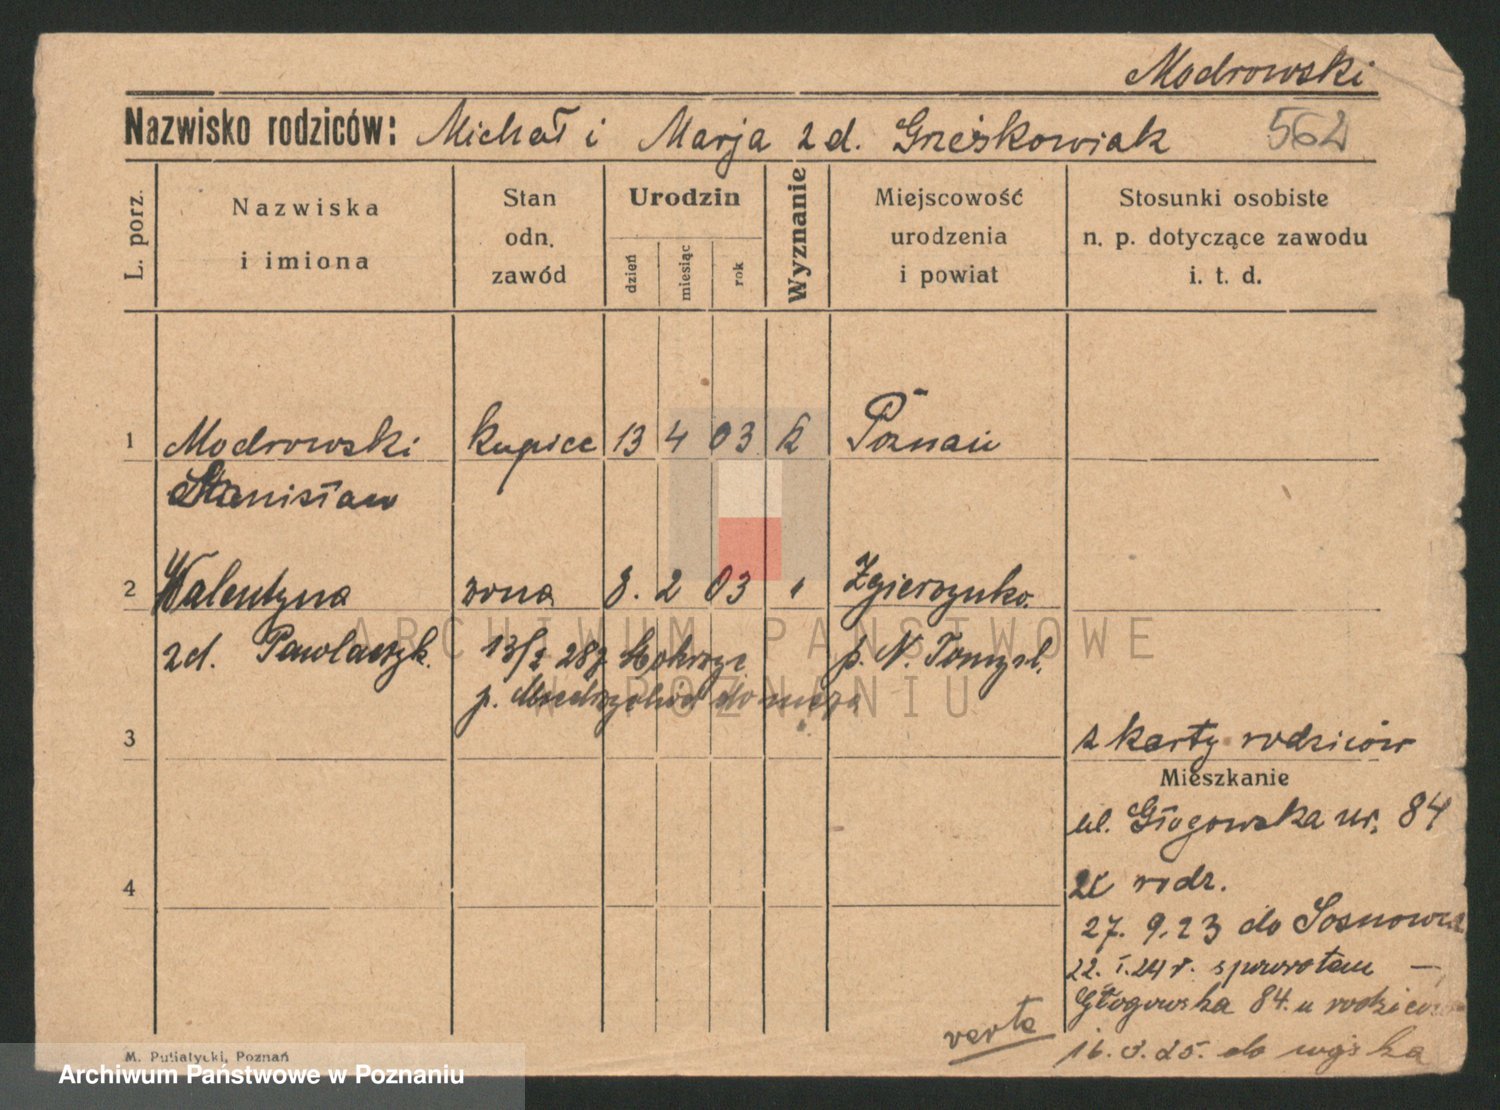 Modrowski
Nazwisko rodziców: Michał i Marja zd. Grześkowiak 562
L. porz.
Nazwiska
i imiona
Stan
odn.
zawód
Urodzin
dzień
miesiąc
rok
Wyznanie
Miejscowość
urodzenia
i powiat
Stosunki osobiste
n. p. dotyczące zawodu
i. t. d.
1 Modrowski kupiec 13 4 03 k Poznań
Stanisław
2 Walentyna żona 8. 2 03 " Zgierzynko.
zd. Pawlaczyk. 13/2 28 z Mokrzyc p. N. Tomyśl.
p. Międzychód do męża
3
z karty rodziców
Mieszkanie
ul. Głogowska nr. 84
4
rodz.
27. 9. 23 do Sosnowca
22. I. 24 r. spowrotem —
Głogowska 84. u rodziców
verte
16. 5. 25. do wojska
M. Putiatycki, Poznań
ARCHIWUM PAŃSTWOWE
W POZNANIU
Archiwum Państwowe w Poznaniu